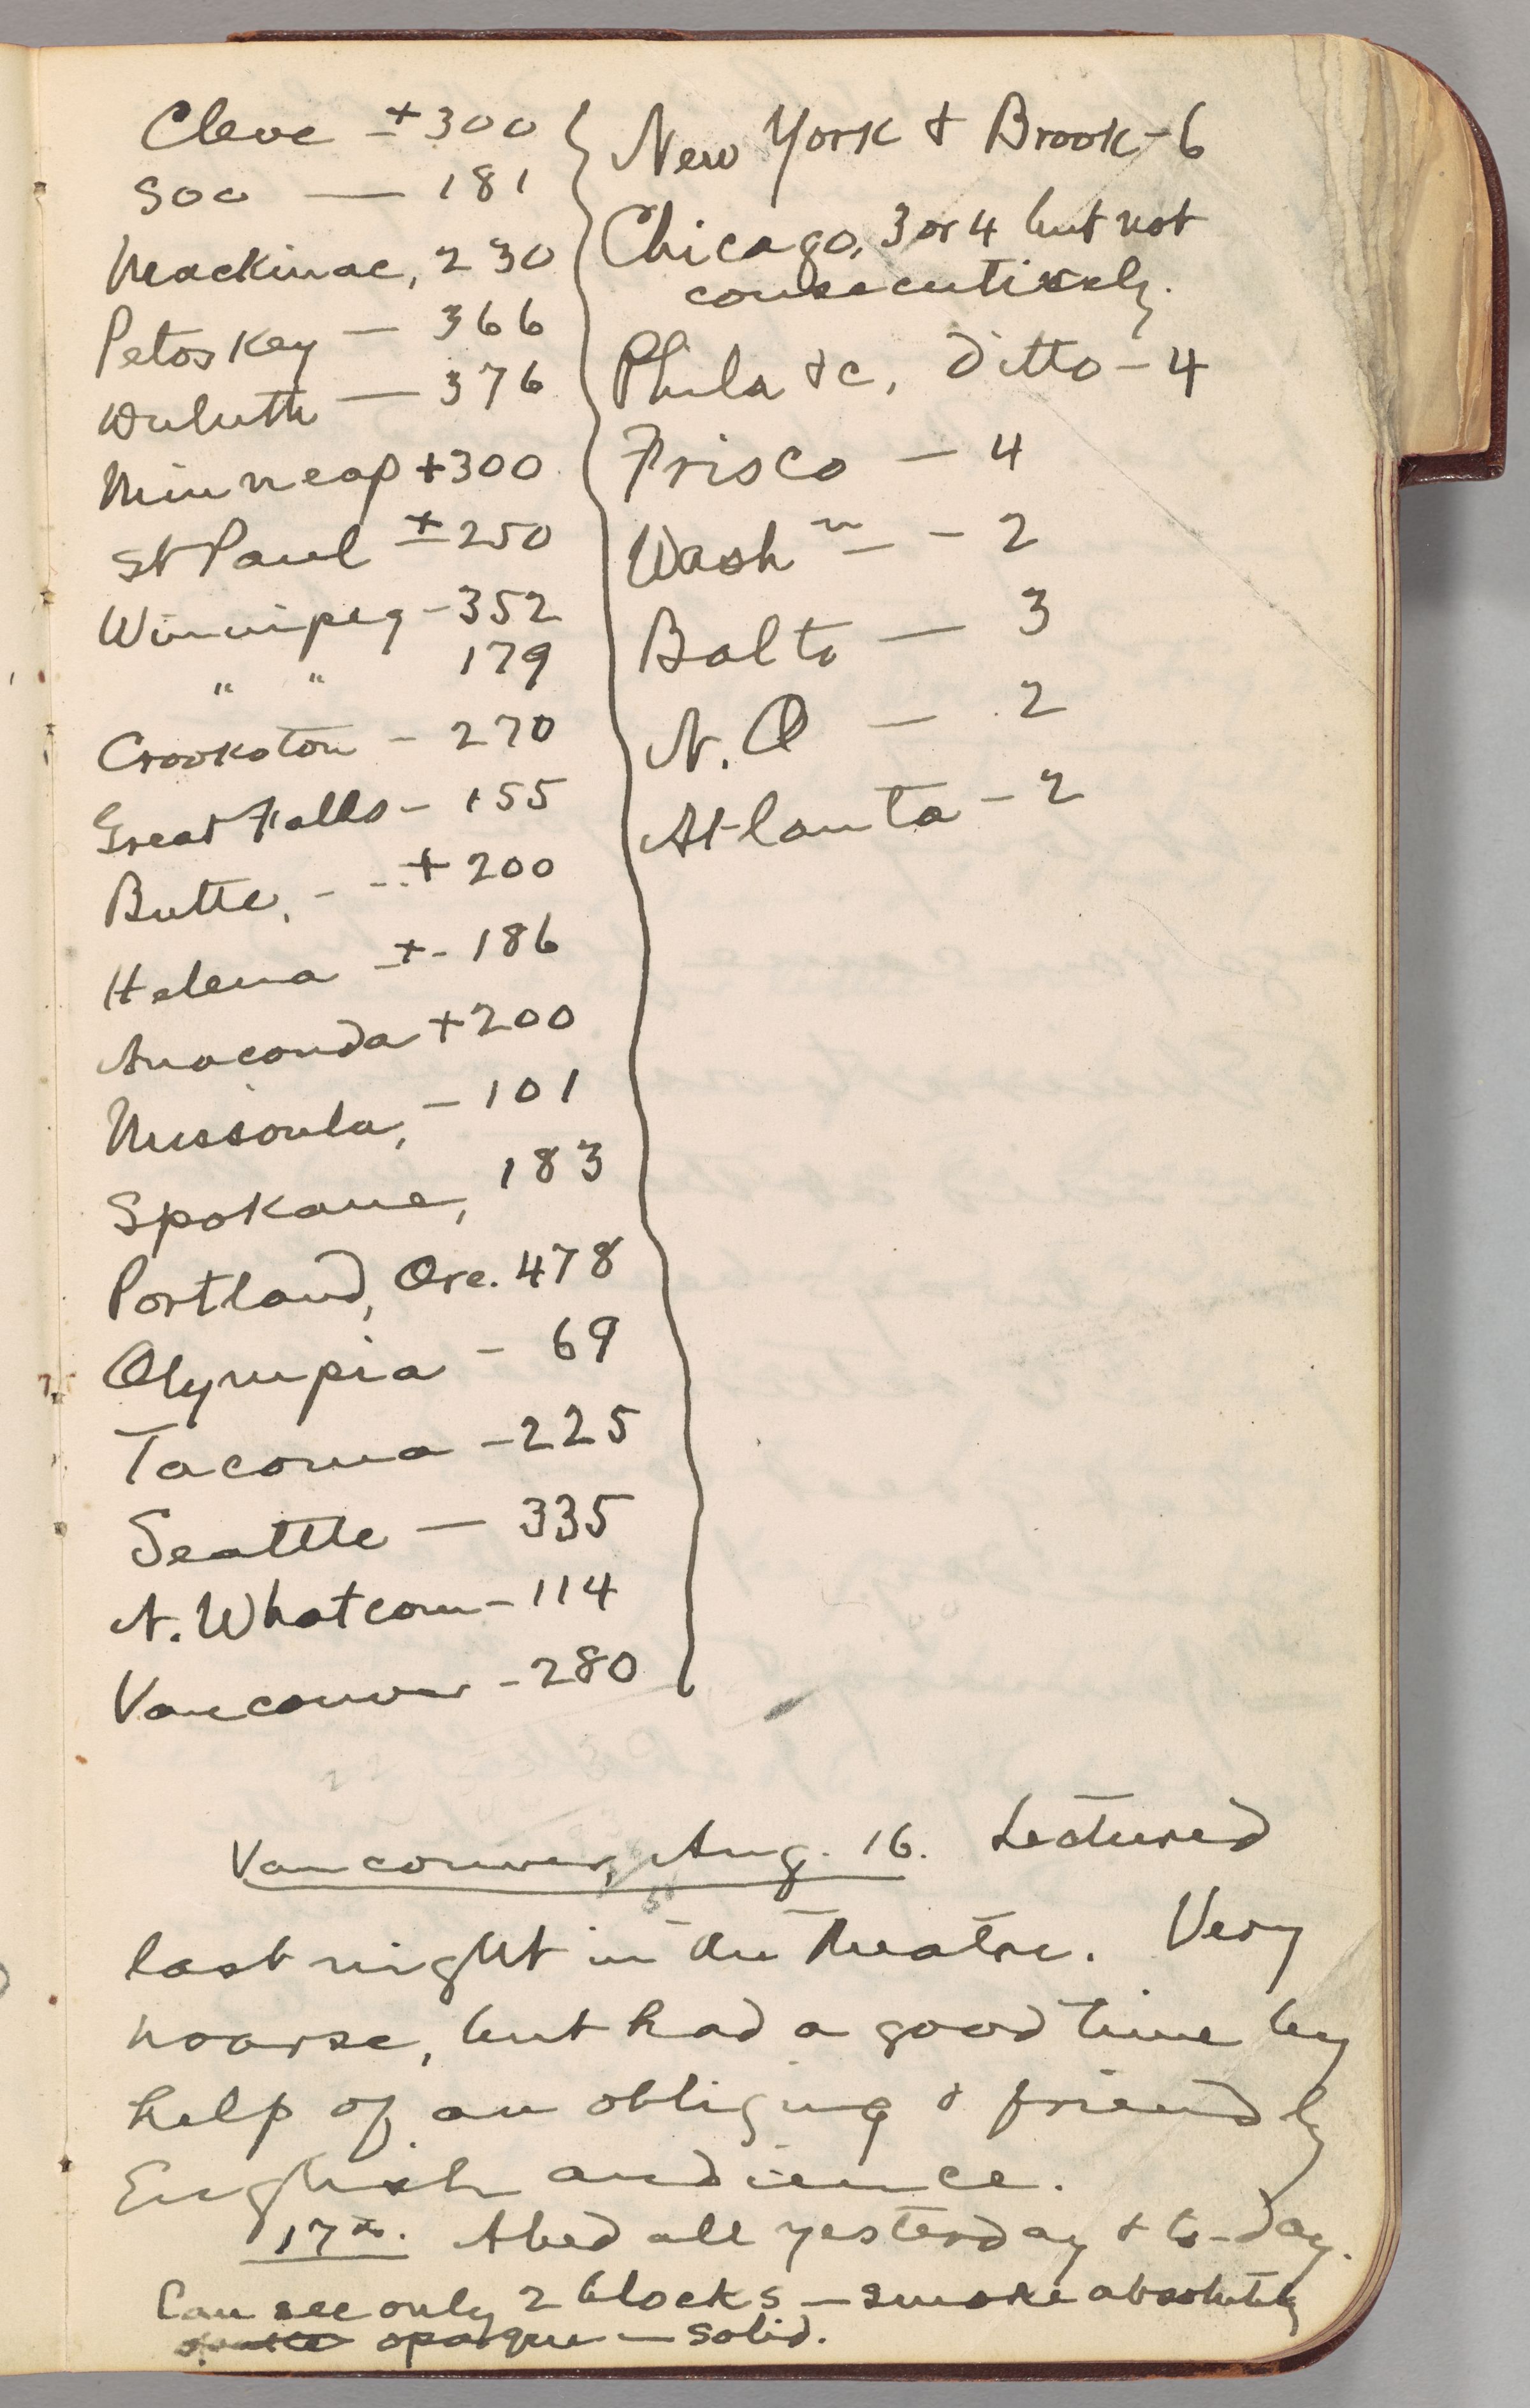 Cleve ± 300
Soo — 181
Mackinac, 230
Petoskey — 366
Duluth — 376
Minneap + 300
St Paul ± 250
Winnipeg - 352
" " 179
Crookston - 270
Great Falls - 155
Butte, - - + 200
Helena ± - 186
Anaconda + 200
Missoula, - 101
Spokane, 183
Portland, Ore. 478
Olympia - 69
Tacoma - 225
Seattle — 335
N. Whatcom - 114
Vancouver - 280
New York & Brook - 6
Chicago, 3 or 4 but not
consecutively.
Phila &c, Ditto - 4
Frisco — 4
Wash n — - 2
Balto — 3
N. O — 2
Atlanta - 2
Vancouver, Aug. 16. Lectured
last night in the theatre. Very
hoarse, but had a good time by
help of an obliging & friendly
English audience.
17th. Abed all yesterday & to-day.
Can see only 2 blocks — smoke absolutely
opaque — solid.